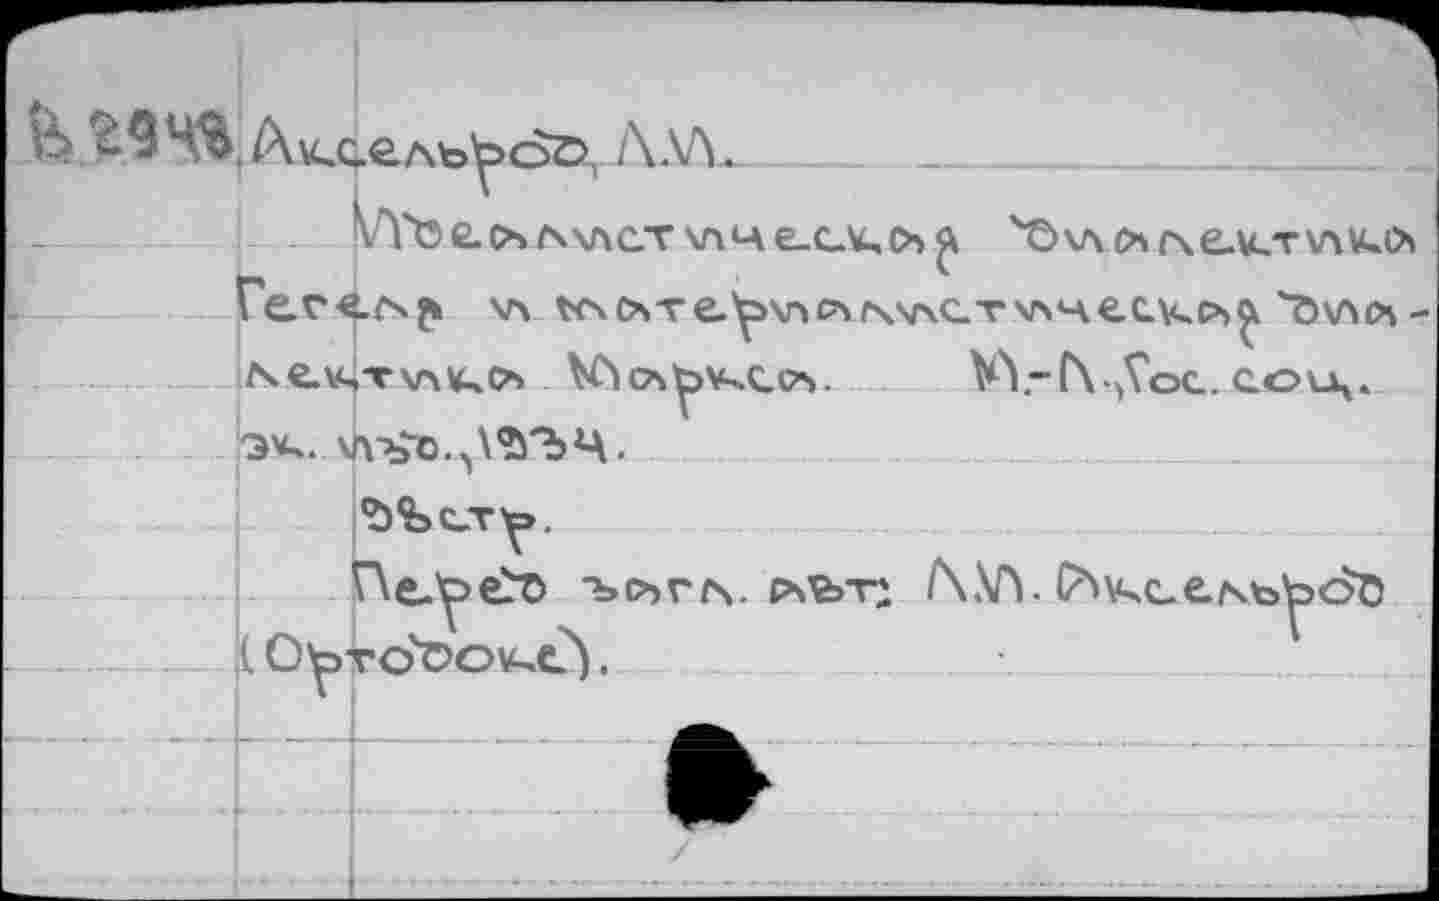 В 2943 Аксельрод, Л.И.
Идеалистическая диалектика
Гегеля и материалистическая диа-
лектика Маркса. М.-Л., Гос. соц.
эк. изд., 1934.
238 стр.
Перед загл. авт: Л.И. Аксельрод
(Ортодокс).